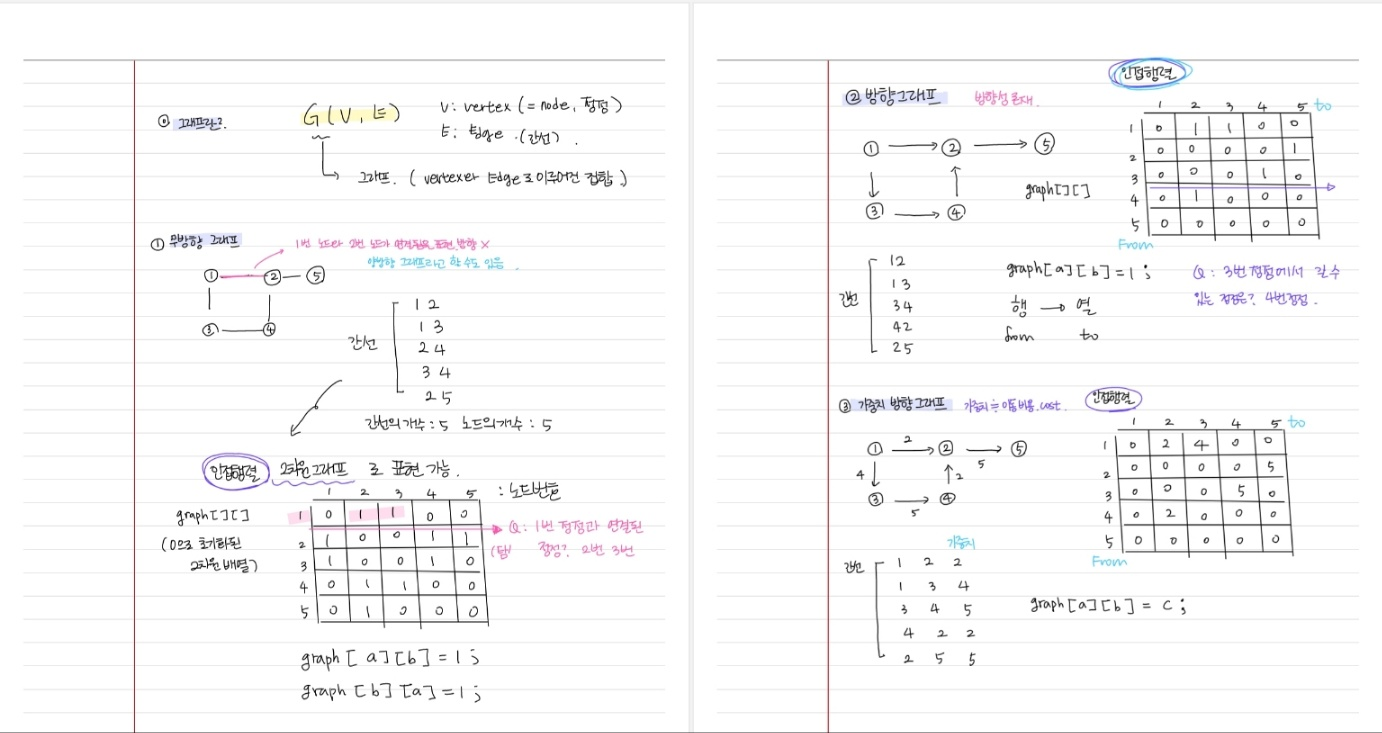 ⓪ 그래프란?
G(V, E)
V: vertex (= node, 정점)
E: Edge. (간선).
그래프. ( vertex와 Edge로 이루어진 집합.)
① 무방향 그래프
1번 노드와 2번 노드가 연결됨을 표현 방향 X
양방향 그래프라고 할 수도 있음.
① ② ⑤
③ ④
간선
1 2
1 3
2 4
3 4
2 5
간선의 개수 : 5 노드의 개수 : 5
인접행렬 2차원 그래프 로 표현 가능.
1 2 3 4 5 : 노드번호들
graph[][]
(0으로 초기화된
2차원 배열)
1 0 1 1 0 0
2 1 0 0 1 1
3 1 0 0 1 0
4 0 1 1 0 0
5 0 1 0 0 0
Q: 1번 정점과 연결된
정점? 2번 3번
graph[a][b] = 1;
graph[b][a] = 1;
인접행렬
② 방향그래프 방향성 존재.
1 2 3 4 5 to
1 0 1 1 0 0
2 0 0 0 0 1
3 0 0 0 1 0
4 0 1 0 0 0
5 0 0 0 0 0
From
① ② ⑤
③ ④
graph[][]
간선
1 2
1 3
3 4
4 2
2 5
graph[a][b] = 1;
행 → 열
from to
Q: 3번정점에서 갈 수
있는 정점은? 4번정점.
③ 가중치 방향그래프 가중치 ≒ 이동비용. cost.
인접행렬
1 2 3 4 5 to
1 0 2 4 0 0
2 0 0 0 0 5
3 0 0 0 5 0
4 0 2 0 0 0
5 0 0 0 0 0
From
① 2 ② 5 ⑤
4 2
③ 5 ④
가중치
간선
1 2 2
1 3 4
3 4 5
4 2 2
2 5 5
graph[a][b] = c;